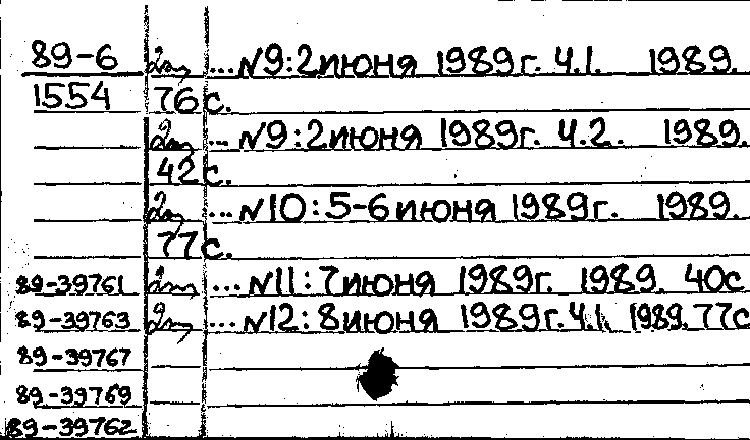 89-6 2эк ... N9: 2 июня 1989г. Ч.1. 1989.
1554 76 с.
2эк ... N9: 2 июня 1989г. Ч.2. 1989.
42 с.
2эк ... N10: 5-6 июня 1989г. 1989.
77 с.
89-39761 2эк ... N11: 7 июня 1989г. 1989. 40с
89-39763 2эк ... N12: 8 июня 1989г. Ч.1. 1989. 77с
89-39767
89-39769
89-39762